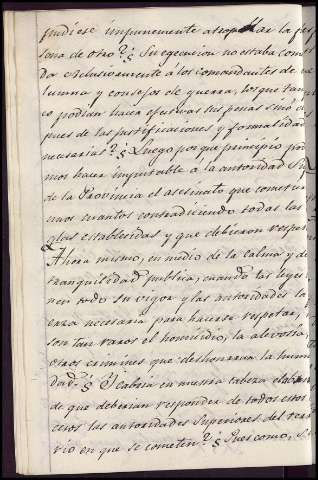 pudiese impunemente atropellar la per
sona de otro? Su egecucion no estaba comi
da esclusivamente á los comandantes de co
lumna y consejos de guerra, los que tampo
co podian hacer efectivas sus penas sinó des
pues de las justificaciones y formalidad
necesarias? Luego por que principio pod
mos hacer imputable á la autoridad Su
de la Provincia el asesinato que cometier
unos cuantos contradiciendo todas las
glas establecidas y que debieron respe
Ahora mismo, en medio de la calma y de
tranquilidad publica, cuando las leyes
nen todo su vigor y las autoridades la
erza necesaria para hacerse respetar,
son tan raros el homicidio, la alevosía
otros crimines que deshonran la huma
dad. Y cabria en nuestra cabeza el
de que deberian responder de todos estos
cesos las autoridades Superiores del terr
rio en que se cometen? Pues como,